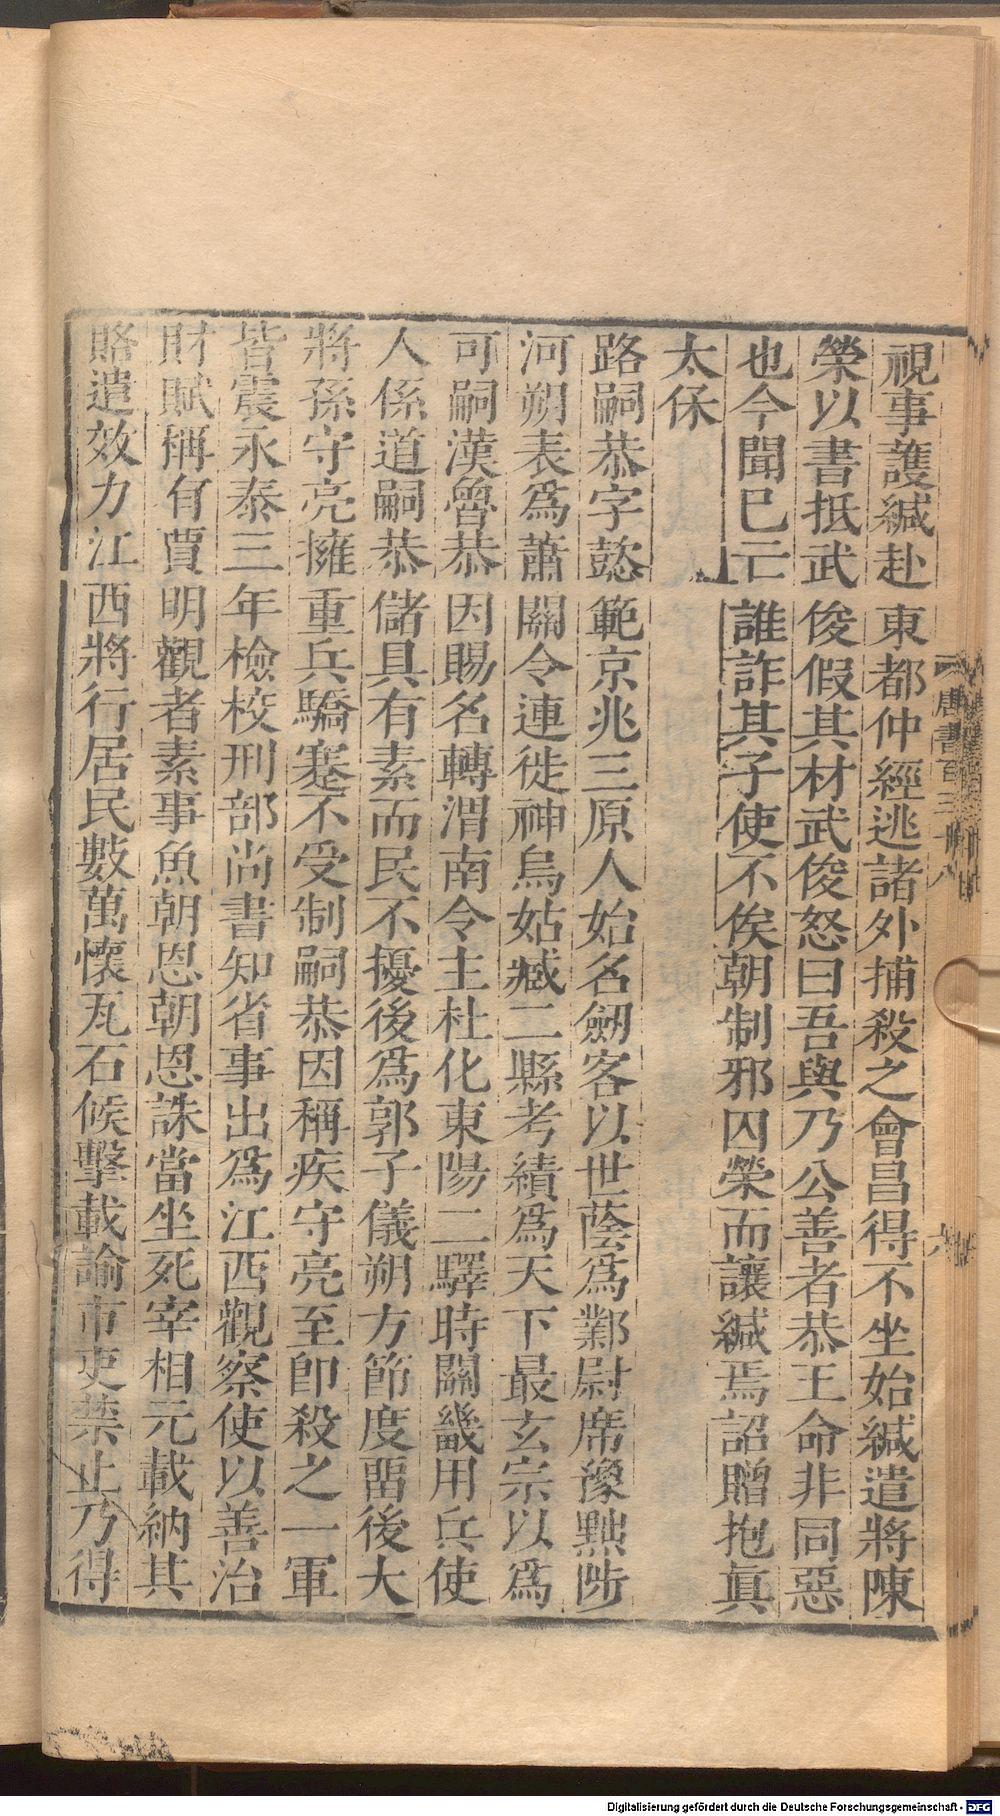 視事護緘赴東都仲經逃諸外捕殺之會昌得不坐始緘遣將陳
榮以書抵武俊假其材武俊怒曰吾與乃公善者恭王命非同惡
也今聞已亡誰詐其子使不俟朝制邪囚榮而讓緘焉詔贈抱眞
太保
路嗣恭字懿範京兆三原人始名劒客以世蔭爲鄴尉席豫黜陟
河朔表爲蕭關令連徙神烏姑臧二縣考績爲天下最玄宗以爲
可嗣漢魯恭因賜名轉渭南令主杜化東陽二驛時關畿用兵使
人係道嗣恭儲具有素而民不擾後爲郭子儀朔方節度畱後大
將孫守亮擁重兵驕蹇不受制嗣恭因稱疾守亮至卽殺之一軍
皆震永泰三年檢校刑部尚書知省事出爲江西觀察使以善治
財賦稱有賈明觀者素事魚朝恩朝恩誅當坐死宰相元載納其
賂遣效力江西將行居民數萬懷瓦石候擊載諭市吏禁止乃得
唐書百三十八
六
Digitalisierung gefördert durch die Deutsche Forschungsgemeinschaft - DFG